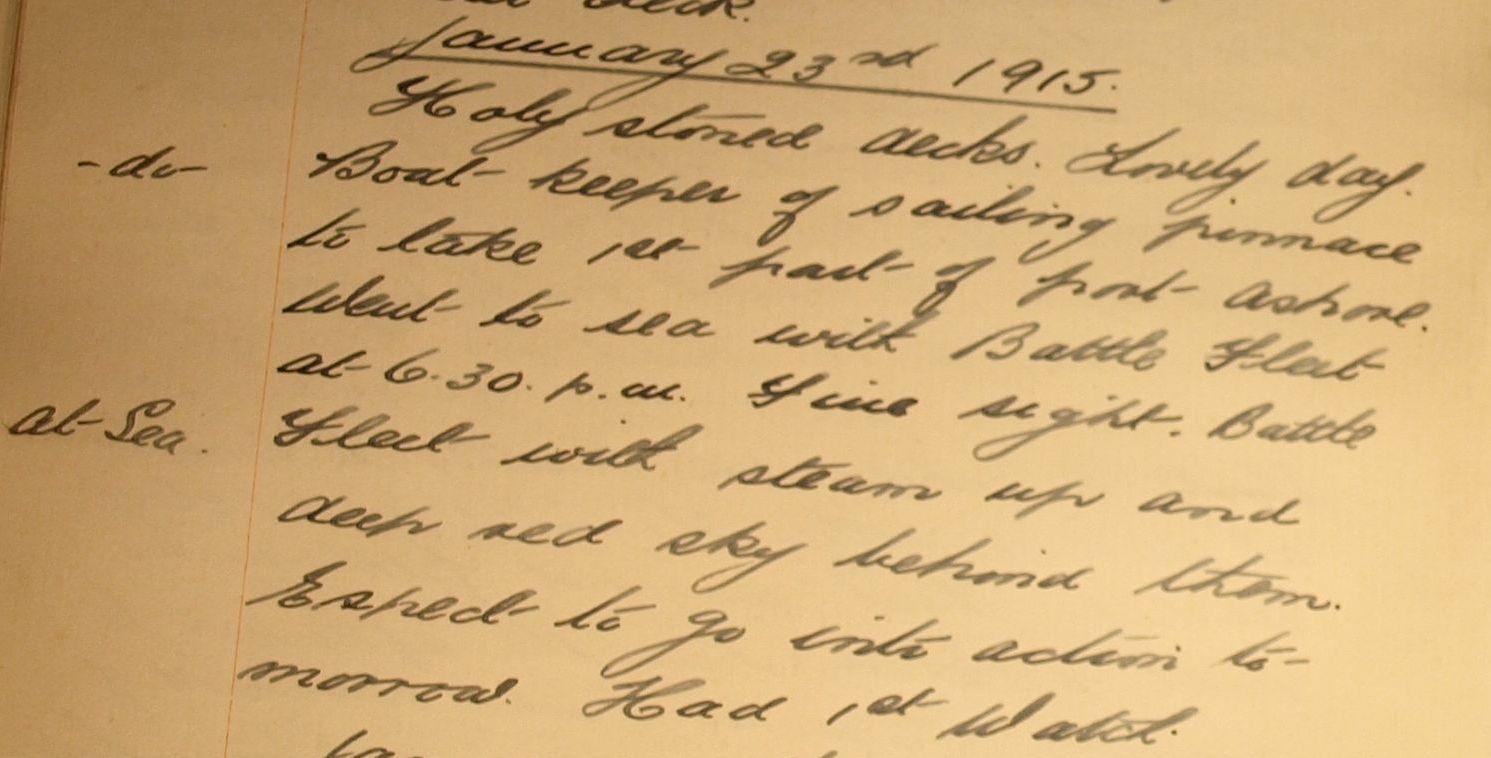 deck.
January 23rd 1915.
Holy stoned decks. Lovely day.
-do- Boat-keeper of sailing pinnace
to take 1st part of port ashore.
Went to sea with Battle Fleet
at 6.30. p.m. Fine sight. Battle
at Sea. Fleet with steam up and
deep red sky behind them.
Expect to go into action to-
morrow. Had 1st Watch.